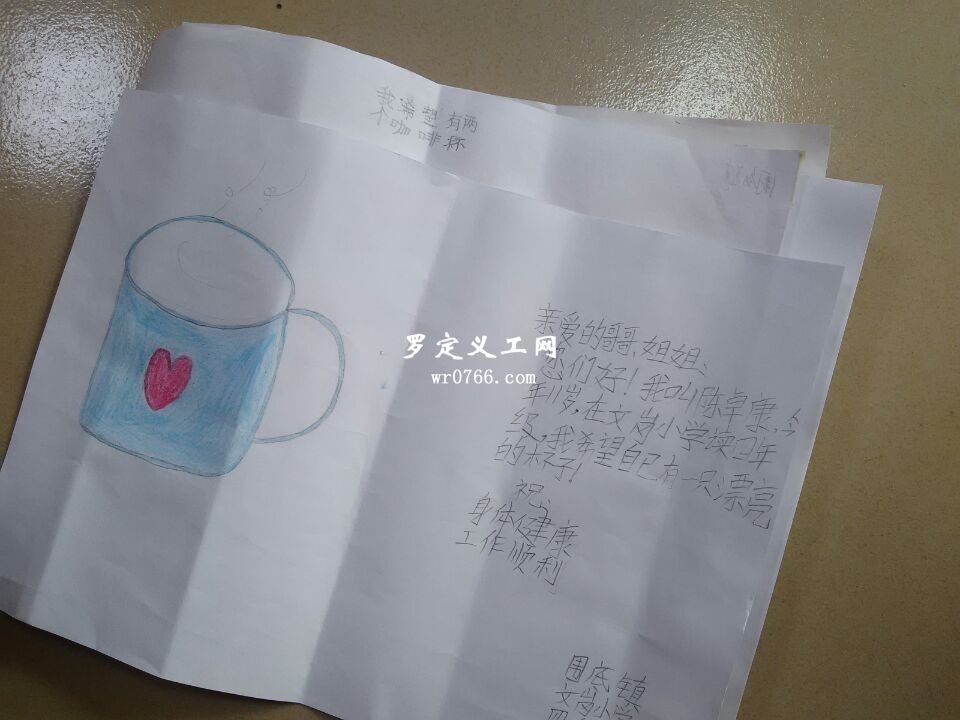 我希望有两
个咖啡杯
亲爱的哥哥、姐姐:
您们好!我叫陈卓康,今
年11岁,在文岗小学读四年
级,我希望自己有一只漂亮
的杯子!
祝:
身体健康
工作顺利
围底镇
文岗小学
四
罗定义工网
wr0766.com